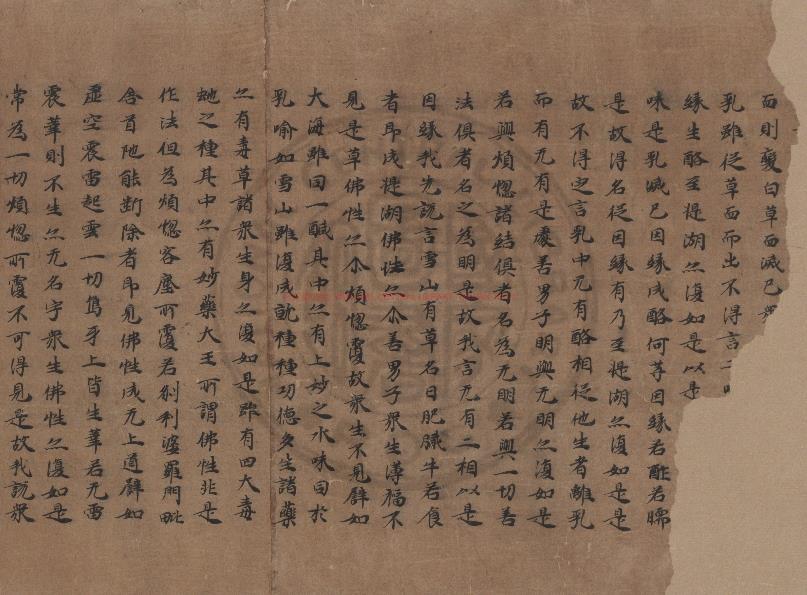 血則變白草血滅已眾
乳雖從草血而出不得言二
緣生酪至醍醐亦復如是以是
味是乳滅已因緣成酪何等因緣若酢若臑
是故得名從因緣有乃至醍醐亦復如是是
故不得定言乳中无有酪相從他生者離乳
而有无有是處善男子明與无明亦復如是
若與煩惱諸結俱者名為无明若與一切善
法俱者名之為明是故我言无有二相以是
因緣我先說言雪山有草名曰肥膩牛若食
者即成醍醐佛性亦尒善男子眾生薄福不
見是草佛性亦尒煩惱覆故眾生不見譬如
大海雖同一醎其中亦有上妙之水味同於
乳喻如雪山雖復成就種種功德多生諸藥
亦有毒草諸眾生身亦復如是雖有四大毒
虵之種其中亦有妙藥大王所謂佛性非是
作法但為煩惱客塵所覆若剎利婆羅門毗
舍首陁能斷除者即見佛性成无上道譬如
虛空震雷起雲一切象牙上皆生華若无雷
震華則不生亦无名字眾生佛性亦復如是
常為一切煩惱所覆不可得見是故我說眾